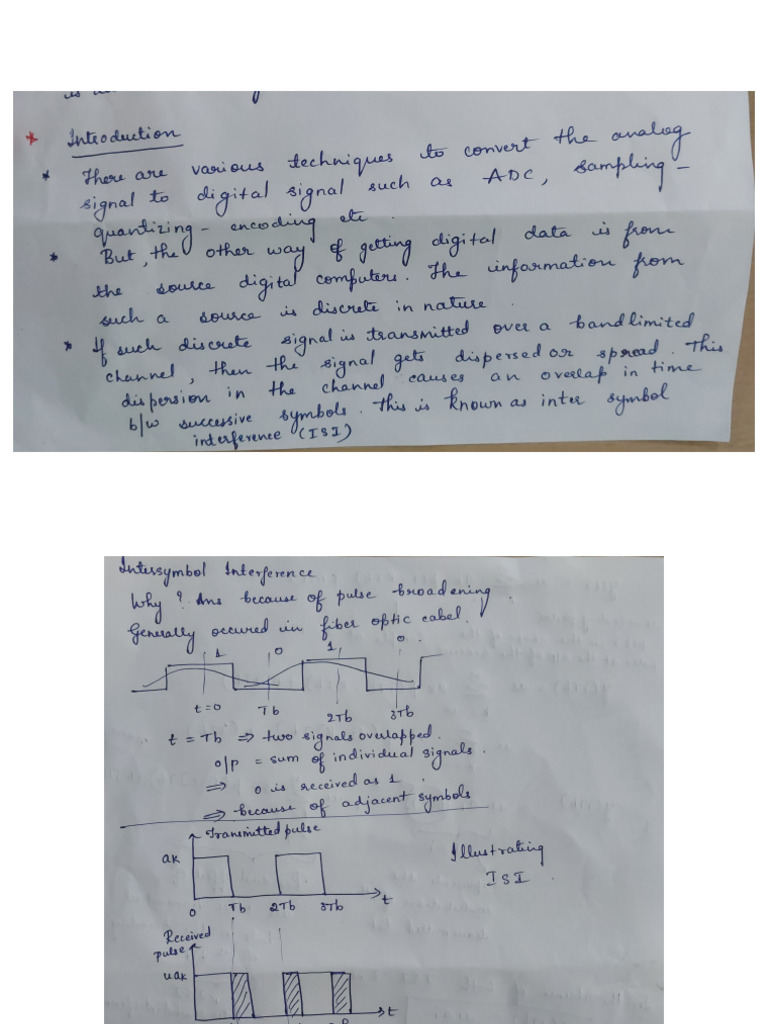 * Introduction
* There are various techniques to convert the analog
signal to digital signal such as ADC, sampling-
quantizing - encoding etc.
* But, the other way of getting digital data is from
the source digital computers. The information from
such a source is discrete in nature.
* If such discrete signal is transmitted over a bandlimited
channel, then the signal gets dispersed or spread. This
dispersion in the channel causes an overlap in time
b/w successive symbols. This is known as inter symbol
interference (ISI)
Intersymbol Interference
Why? Ans because of pulse broadening.
Generally occured in fiber optic cabel.
1 0 1 0
t=0 Tb 2Tb 3Tb
t = Tb ⇒ two signals overlapped.
o/p = sum of individual signals.
⇒ 0 is received as 1.
⇒ because of adjacent symbols
Transmitted pulse
ak
Illustrating
ISI.
0 Tb 2Tb 3Tb t
Received
pulse
uak
t